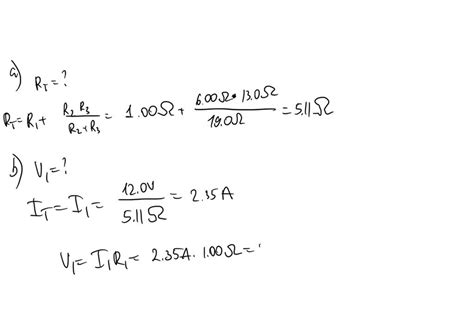 a) R_T = ?
R_T = R_1 + \frac{R_2 R_3}{R_2 + R_3} = 1.00Ω + \frac{6.00Ω • 13.0Ω}{19.0Ω} = 5.11Ω
b) V_1 = ?
I_T = I_1 = \frac{12.0V}{5.11Ω} = 2.35A
V_1 = I_1 R_1 = 2.35A · 1.00Ω =